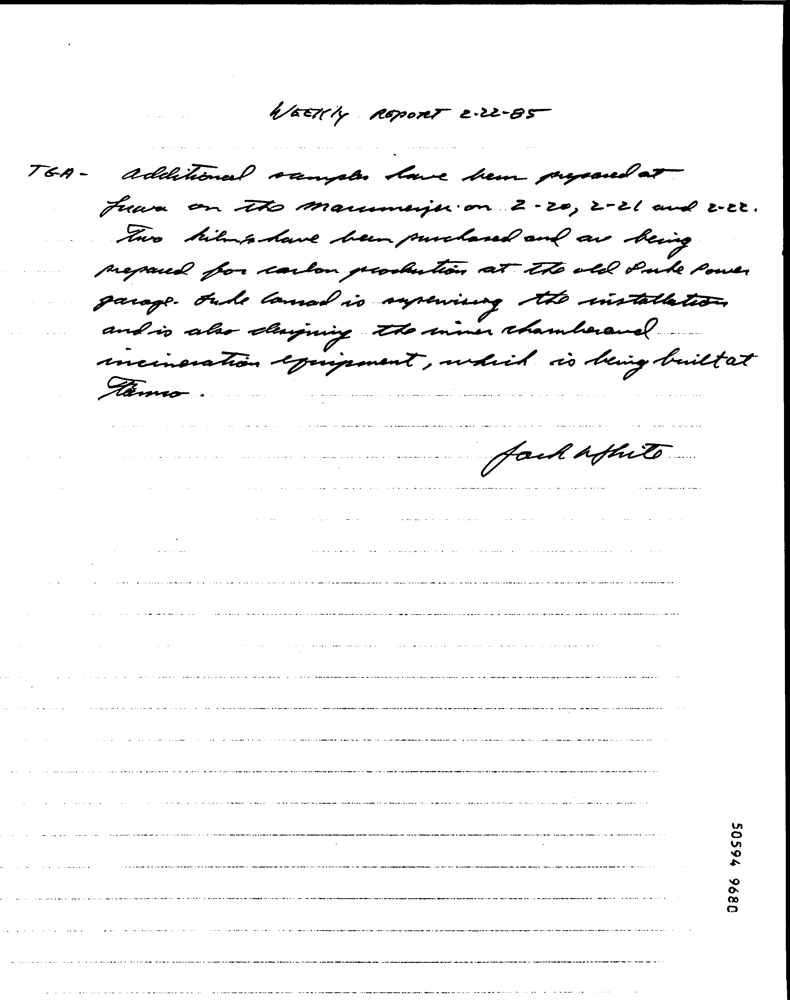 WEEKLY REPORT 2-22-85
TGA - Additional samples have been prepared at
on the Marumerizer on 2-20, 2-21 and 2-22.
Two kilns have been purchased and are being
prepared for carbon production at the old Duke Power
garage. is supervising the installation
and is also designing the inner chamber and
incineration equipment, which is being built at
Jack White
50594 9680